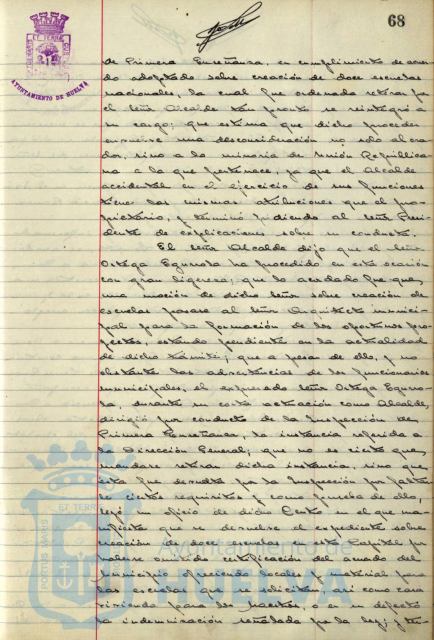 68
AYUNTAMIENTO DE HUELVA
de Primera Enseñanza, en cumplimiento de acuer-
do adoptado sobre creación de doce escuelas
nacionales, la cual fue ordenada retirar por
el señor Alcalde tan pronto se reintegró a
su cargo; que estima que dicho proceder
envuelve una desconsideración no solo al ora-
dor, sino a la minoría de Unión Republica-
na a la que pertenece, ya que el Alcalde
accidental en el ejercicio de sus funciones
tiene las mismas atribuciones que el pro-
pietario, y terminó pidiendo al señor Presi-
dente de explicaciones sobre su conducta.
El señor Alcalde dijo que el señor
Ortega Egurrola ha procedido en esta ocasión
con gran ligereza; que lo acordado fue que
una moción de dicho señor sobre creación de
escuelas pasara al señor Arquitecto munici-
pal para la formación de los oportunos pro-
yectos, estando pendiente en la actualidad
de dicho trámite; que a pesar de ello, y no
obstante las advertencias de los funcionarios
municipales, el expresado señor Ortega Egurro-
la, durante su corta actuación como Alcalde,
dirigió por conducto de la Inspección de
Primera Enseñanza, la instancia referida a
la Dirección General; que no es cierto que
mandara retirar dicha instancia, sino que
esta fue devuelta por la Inspección por faltar-
le ciertos requisitos y como prueba de ello,
leyó un oficio de dicho Centro en el que ma-
nifiesta que se devuelve el expediente sobre
creación de doce escuelas en esta Capital por
haberse omitido certificación del acuerdo del
Municipio ofreciendo locales y material para
las escuelas que se solicitan, así como casa
vivienda para los maestros, o en su defecto
la indemnización señalada por la ley; y
ET TERRAE
PORTUS MARIS
Ayuntamiento de
HUELVA